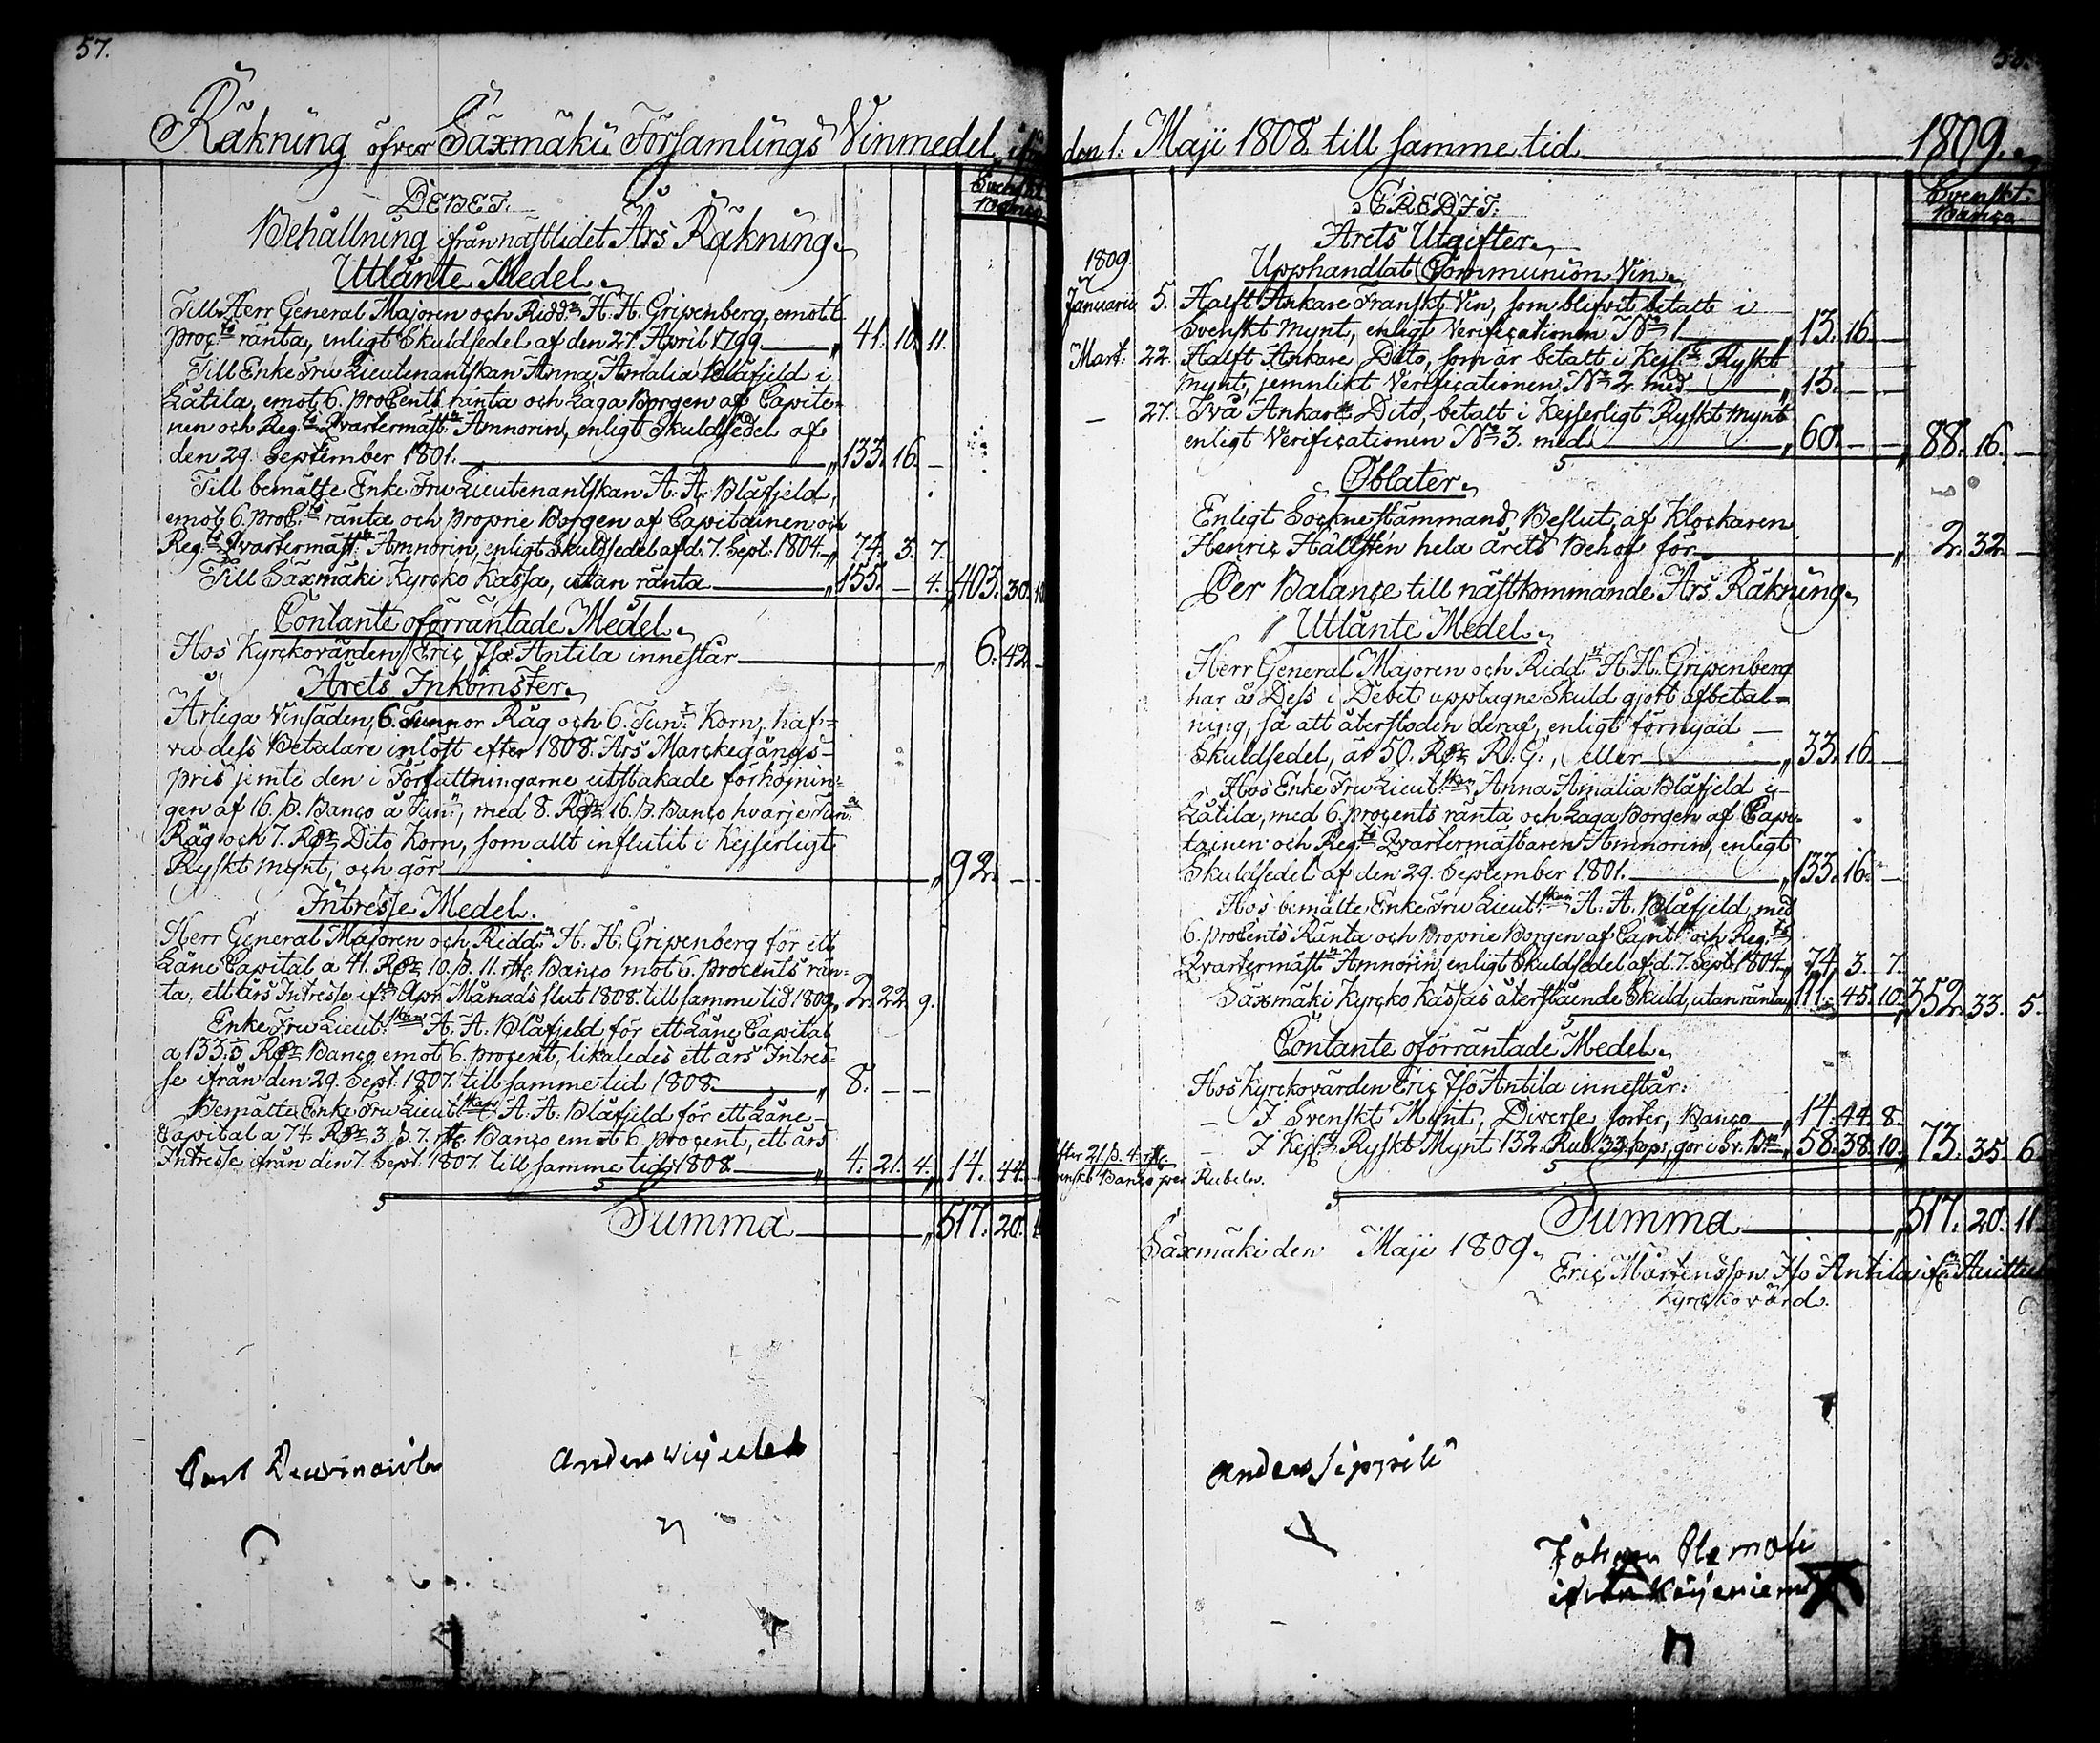 57.
Räkning öfver Säxmäki Församlings Vinmedel ifrån
Svenskt
Banco
DEBET.
Behållning ifrån nästlidet Års Räkning.
Utlånte Medel.
Till Herr General Majoren och Ridd:n H. H. Gripenberg, emot 6.
proc:ts ränta, enligt Skuldsedel af den 27. April 1799 „ 41. 10. 11.
Till Enke Fru Lieutenantskan Anna Amalia Blåfjeld i
Låtila, emot 6. proCents ränta och Laga Borgen af Capite-
nen och Reg:ts Qvartermäst:n Amnorin, enligt Skuldsedel af
den 29. September 1801. „ 133. 16. —
Till bemälte Enke Fru Lieutenantskan A. A. Blåfjeld,
emot 6. proC:ts ränta och proprie Borgen af Capitainen och
Reg:ts Qvartermäst:n Amnorin, enligt Skuldsedel af d. 7. Sept: 1804. „ 74. 3. 7.
Till Säxmäki Kyrcko Kassa, utan ränta „ 155. — 4. „ 403. 30. 10
Contante oförräntade Medel.
Hos Kyrckovärden Eric Iso Antila innestår „ 6. 42. —
Årets Inkomster.
Årliga Vinsäden, 6. Tunnor Råg och 6. Tun:r Korn, haf-
va dess Betalare inlöst efter 1808. Års Marckegångs-
pris jemte den i Författningarne utstakade förhöjnin-
gen af 16. ß. Banco a Tun:n, med 8. Rdr 16. ß. Banco hvarje Tun:a
Råg och 7. Rdr Dito Korn, som allt influtit i Kejserligt
Ryskt mynt, och gör „ 92. — —
Intresse Medel.
Herr General Majoren och Ridd:n H. H. Gripenberg för ett
Låne Capital a 41. Rdr 10. ß. 11. rst. Banco mot 6. procents rän-
ta, ett års Intresse ifr: Apr. Månads slut 1808. till samme tid 1809. „ 2. 22. 9.
Enke Fru Lieut:skan A. A. Blåfjeld för ett Låne Capital
a 133. 1/3 Rdr Banco emot 6. procent, likaledes ett års Intres-
se ifrån den 29. Sept: 1807. till samme tid 1808. „ 8. — —
Bemälte Enke Fru Lieut:skan A. A. Blåfjeld för ett Låne-
Capital a 74. Rdr 3. ß. 7. rst. Banco emot 6. procent, ett års
Intresse ifrån den 7. Sept. 1807. till samme tid 1808. „ 4. 21. 4. „ 14. 44. 1
Summa „ 517. 20. 11
Anders
den 1. Maji 1808. till samme tid 1809.
Svenskt
Banco
CREDIT.
Årets Utgifter.
1809.
Upphandlat Communion Vin.
Januarii 5. Halft Ankare Franskt Vin, som blifvit betalt i
Svenskt Mynt, enligt Verificationen N:o 1 „ 13. 16. —
Mart. 22. Halft Ankare Dito, som är betalt i Kejs:t Ryskt
mynt, jemnlikt Verificationen N:o 2. med „ 15. — —
— 27. Två Ankare Dito, betalt i Kejserligt Ryskt mynt
enligt Verificationen N:o 3. med „ 60. — — „ 88. 16. —
Oblater.
Enligt Sockne stämmans Beslut, af Klockaren
Henric Hällstén hela årets Behof för „ 2. 32. —
Per Balance till nästkommande Års Räkning.
Utlånte Medel.
Herr General Majoren och Ridd:n H. H. Gripenberg
har å Dess i Debet upptagne Skuld gjort afbetal-
ning, så att återstoden deraf, enligt förnyad
Skuldsedel, är 50. Rdr R. G., eller „ 33. 16. —
Hos Enke Fru Lieut:skan Anna Amalia Blåfjeld i
Låtila, med 6. procents ränta och Laga Borgen af Capi-
tainen och Reg:ts Qvartermästaren Amnorin, enligt
Skuldsedel af den 29. September 1801. „ 133. 16. —
Hos bemälte Enke Fru Lieut:skan A. A. Blåfjeld, med
6. proCents Ränta och proprie Borgen af Capit:n och Reg:ts
Qvartermäst:n Amnorin, enligt Skuldsedel af d. 7. Sept. 1804. „ 74. 3. 7.
Säxmäki Kyrcko Kassas återstående Skuld, utan ränta „ 111. 45. 10. „ 352. 33. 5.
Contante oförräntade Medel.
Hos Kyrckovärden Eric Iso Antila innestår:
— I Svenskt Mynt, Diverse sorter, Banco „ 14. 44. 8.
— I Kejs:t Ryskt Mynt 132. Rub. 33. kop., gör i Sv. B:co „ 58. 38. 10. „ 73. 35. 6.
efter 21. ß. 4. rst.
svenskt Banco per Rubel.
Summa „ 517. 20. 11.
Säxmäki den Maji 1809.
Eric Mårtensson Iso Antila ifr: Huittu
Kyrckovärd.
Anders Sippili
Johan
ifrån